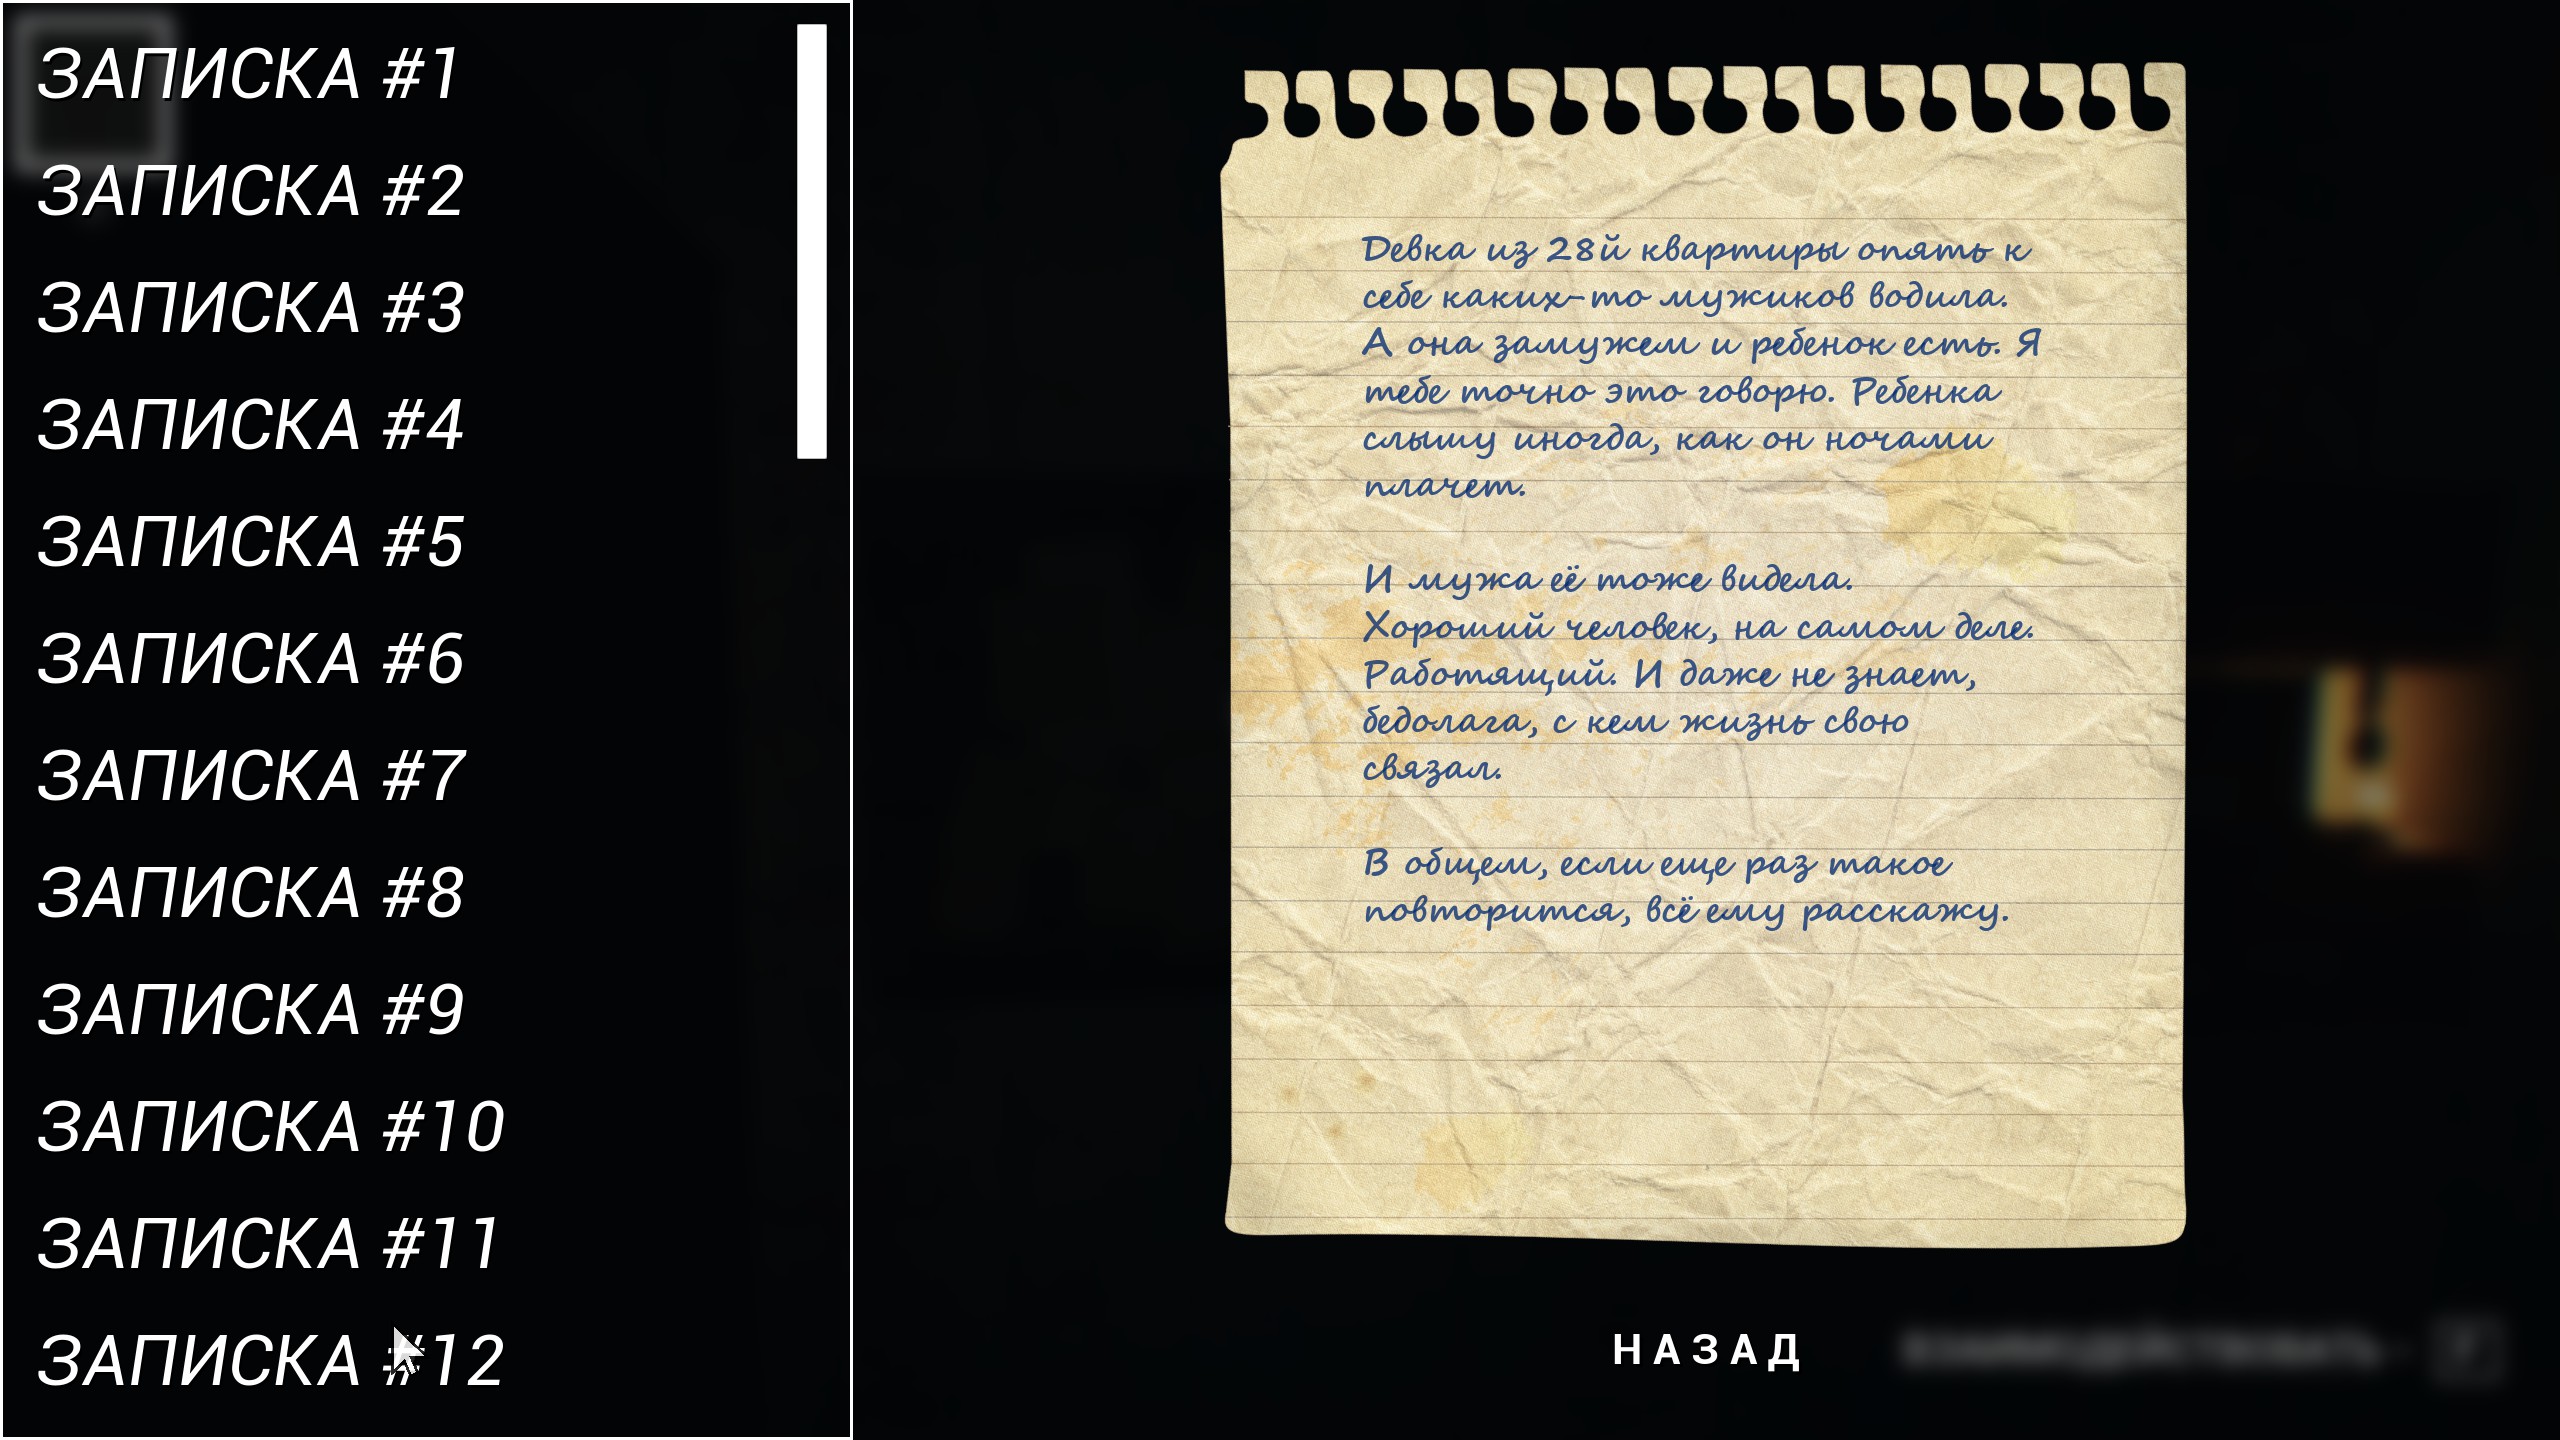 ЗАПИСКА #1
ЗАПИСКА #2
ЗАПИСКА #3
ЗАПИСКА #4
ЗАПИСКА #5
ЗАПИСКА #6
ЗАПИСКА #7
ЗАПИСКА #8
ЗАПИСКА #9
ЗАПИСКА #10
ЗАПИСКА #11
ЗАПИСКА #12
Девка из 28й квартиры опять к
себе каких-то мужиков водила.
А она замужем и ребенок есть. Я
тебе точно это говорю. Ребенка
слышу иногда, как он ночами
плачет.
И мужа её тоже видела.
Хороший человек, на самом деле.
Работящий. И даже не знает,
бедолага, с кем жизнь свою
связал.
В общем, если еще раз такое
повторится, всё ему расскажу.
НАЗАД